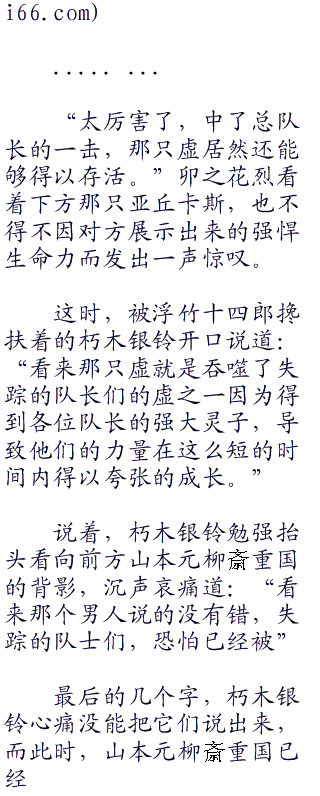 i66.com)
..... ...
“太厉害了，中了总队
长的一击，那只虚居然还能
够得以存活。”卯之花烈看
着下方那只亚丘卡斯，也不
得不因对方展示出来的强悍
生命力而发出一声惊叹。
这时，被浮竹十四郎搀
扶着的朽木银铃开口说道：
“看来那只虚就是吞噬了失
踪的队长们的虚之一因为得
到各位队长的强大灵子，导
致他们的力量在这么短的时
间内得以夸张的成长。”
说着，朽木银铃勉强抬
头看向前方山本元柳斎重国
的背影，沉声哀痛道：“看
来那个男人说的没有错，失
踪的队士们，恐怕已经被”
最后的几个字，朽木银
铃心痛没能把它们说出来，
而此时，山本元柳斎重国已
经